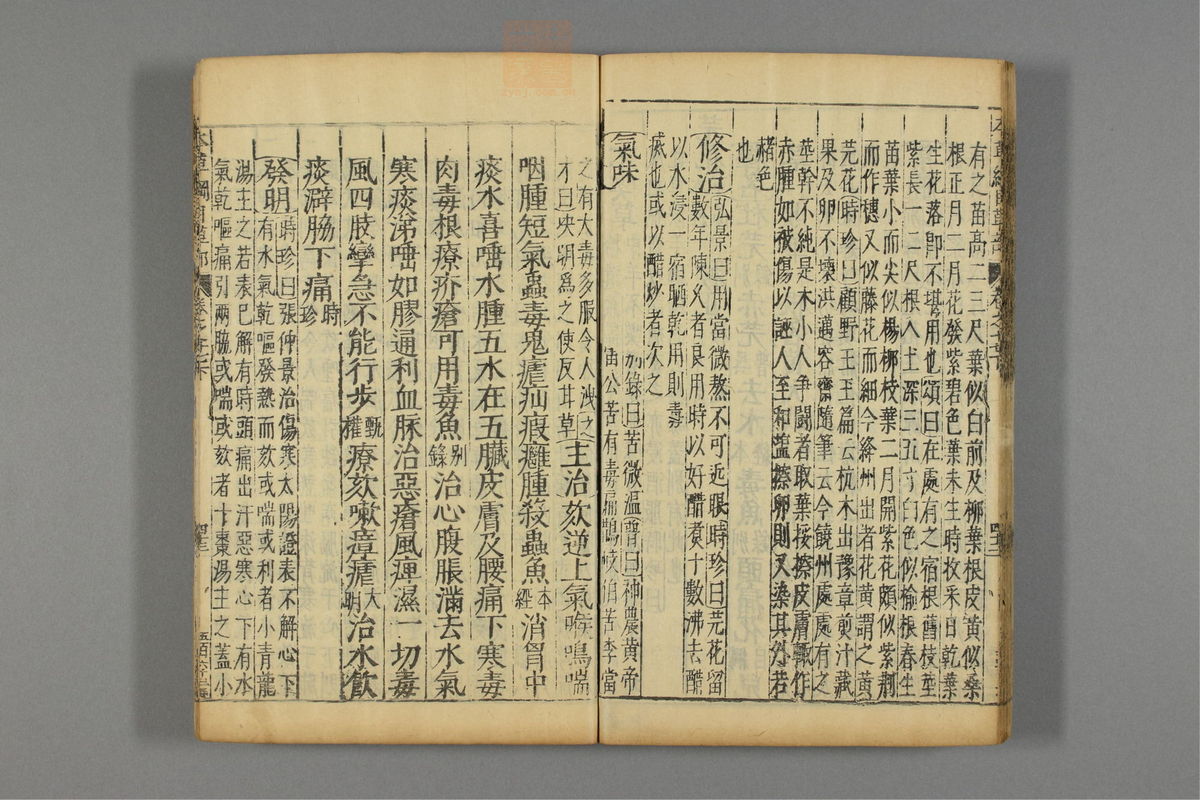 有之苗高二三尺葉似白前及柳葉根皮黃似桑
根正月二月花發紫碧色葉未生時收采日乾葉
生花落即不堪用也頌曰在處有之宿根舊枝莖
紫長一二尺根入土深三五寸白色似榆根春生
苗葉小而尖似楊柳枝葉二月開紫花頗似紫荊
而作穗又似藤花而細今絳州出者花黃謂之黃
芫花時珍曰顧野王玉篇云杬木出豫章煎汁藏
果及卵不壞洪邁容齋隨筆云今饒州處處有之
莖幹不純是木小人爭鬪者取葉挼擦皮膚輒作
赤腫如被傷以誣人至和鹽擦卵則又染其外若
赭色
也
修治弘景曰用當微熬不可近眼時珍曰芫花留
數年陳久者良用時以好醋煑十數沸去醋
以水浸一宿晒乾用則毒
滅也或以醋炒者次之
氣味
別錄曰苦微溫普曰神農黃帝
雷公苦有毒扁鵲岐伯苦李當
之有大毒多服令人洩之
才曰決明爲之使反甘草主治欬逆上氣喉鳴喘
咽腫短氣蟲毒鬼瘧疝瘕癰腫殺蟲魚本經消胷中
痰水喜唾水腫五水在五臟皮膚及腰痛下寒毒
肉毒根療疥瘡可用毒魚別錄治心腹脹滿去水氣
寒痰涕唾如膠通利血脉治惡瘡風痺濕一切毒
風四肢攣急不能行步甄權療欬嗽瘴瘧大明治水飲
痰澼脇下痛時珍
發明時珍曰張仲景治傷寒太陽證表不解心下
有水氣乾嘔發熱而欬或喘或利者小青龍
湯主之若表已解有時頭痛出汗惡寒心下有水
氣乾嘔痛引兩脇或喘或欬者十棗湯主之蓋小